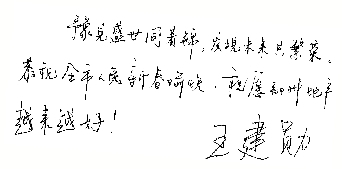 豫见盛世同着锦，发现未来共繁荣。
恭祝全市人民新春愉悦，祝愿郑州地产
越来越好！
王建勋